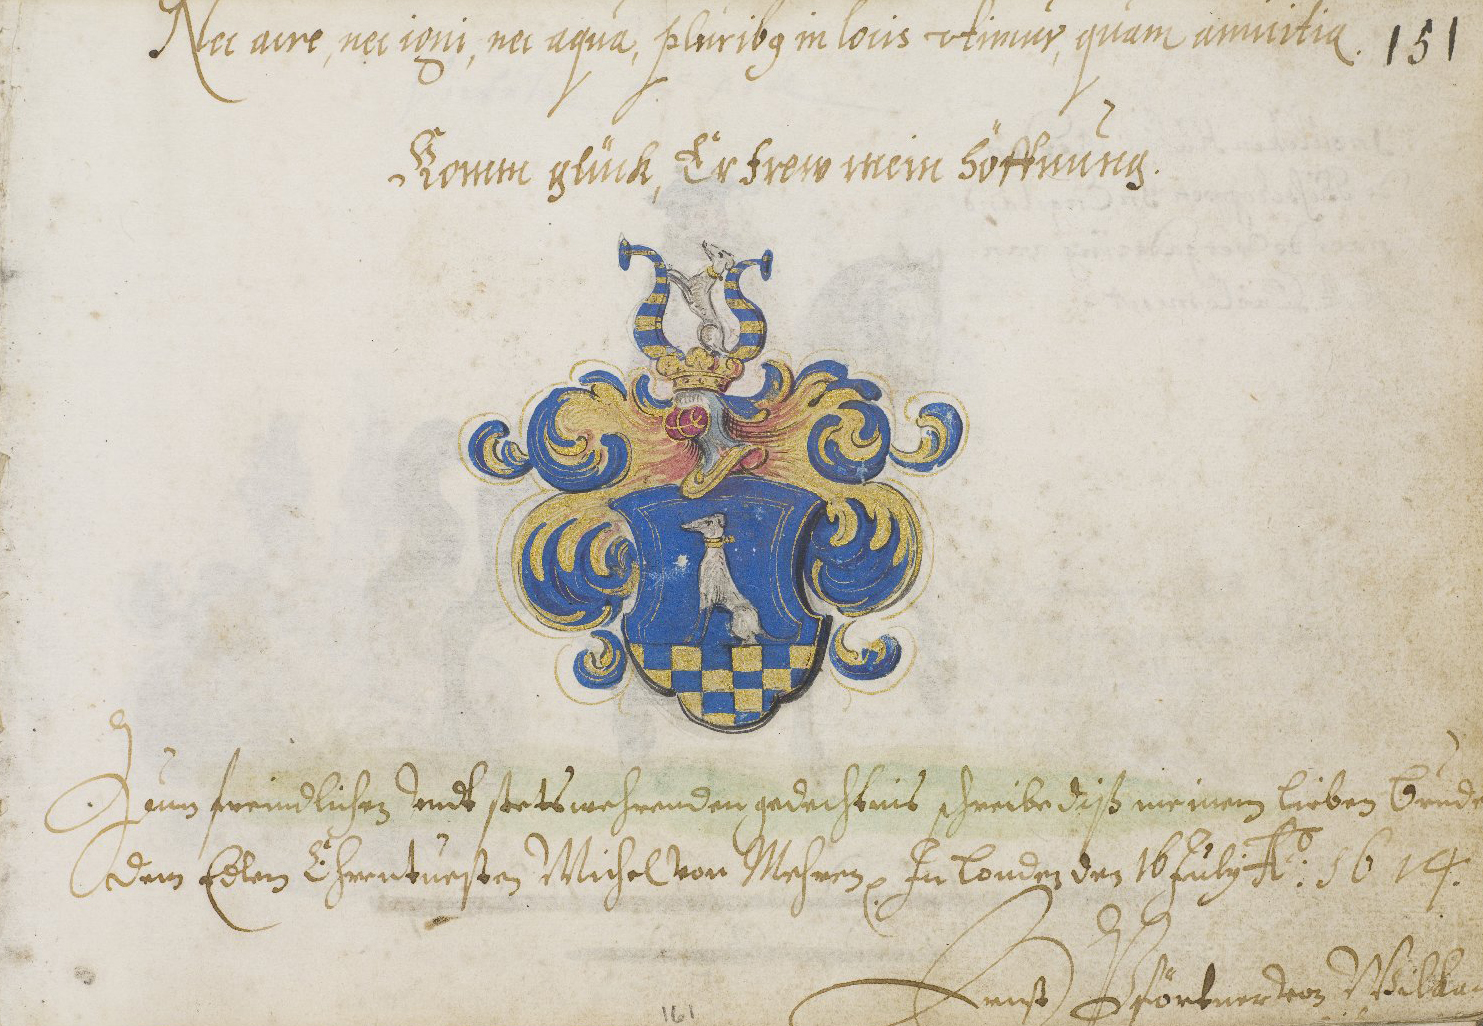 Nec aere, nec igni, nec aqua, pluribg in locis vtimur, quam amicitia. 151
Komm glück, Erfrew mein höffnung.
Zum freindlichen vndt stetswehrenden gedechtnis schreibe diß meinem lieben Brude
dem Edlen Ehrentuesten Michel von Mehren. In Londen den 16 July Aº: 1614.
Ernst Pförtner von
161